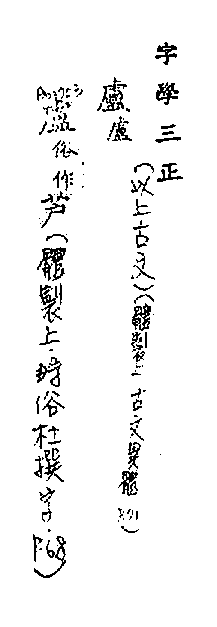 字學三正
盧廬
(以上古文)(體製上 古文異體
俗作芦(體製上·時俗杜撰字·P.68)